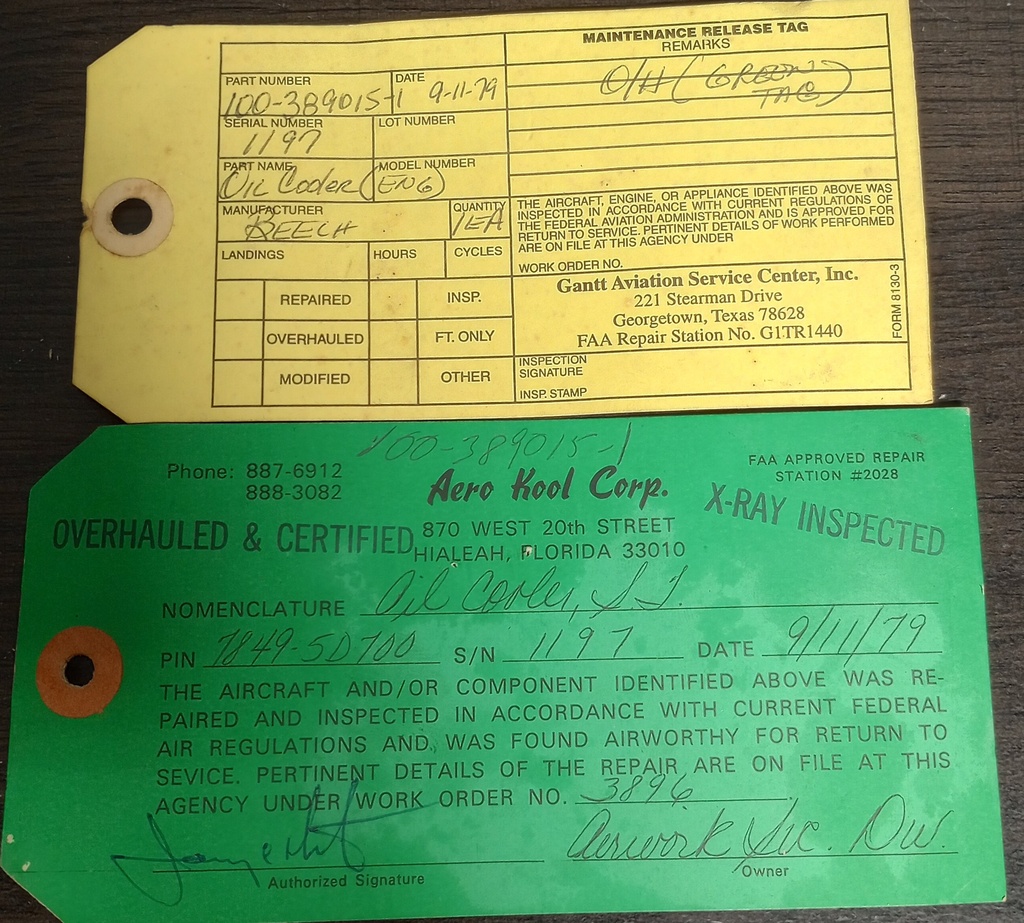 MAINTENANCE RELEASE TAG
REMARKS
O/H (GREEN TAG)
PART NUMBER
100-389015-1
DATE
9-11-79
SERIAL NUMBER
1197
LOT NUMBER
PART NAME
OIL COOLER (ENG)
MODEL NUMBER
MANUFACTURER
BEECH
QUANTITY
1EA
LANDINGS HOURS CYCLES
REPAIRED INSP.
OVERHAULED FT. ONLY
MODIFIED OTHER
THE AIRCRAFT, ENGINE, OR APPLIANCE IDENTIFIED ABOVE WAS
INSPECTED IN ACCORDANCE WITH CURRENT REGULATIONS OF
THE FEDERAL AVIATION ADMINISTRATION AND IS APPROVED FOR
RETURN TO SERVICE. PERTINENT DETAILS OF WORK PERFORMED
ARE ON FILE AT THIS AGENCY UNDER
WORK ORDER NO.
Gantt Aviation Service Center, Inc.
221 Stearman Drive
Georgetown, Texas 78628
FAA Repair Station No. G1TR1440
INSPECTION
SIGNATURE
INSP. STAMP
FORM 8130-3
100-389015-1
Phone: 887-6912
888-3082
Aero Kool Corp.
FAA APPROVED REPAIR
STATION #2028
OVERHAULED & CERTIFIED
870 WEST 20th STREET
HIALEAH, FLORIDA 33010
X-RAY INSPECTED
NOMENCLATURE Oil Cooler, S.T.
PIN 7849-5D700 S/N 1197 DATE 9/11/79
THE AIRCRAFT AND/OR COMPONENT IDENTIFIED ABOVE WAS RE-
PAIRED AND INSPECTED IN ACCORDANCE WITH CURRENT FEDERAL
AIR REGULATIONS AND WAS FOUND AIRWORTHY FOR RETURN TO
SEVICE. PERTINENT DETAILS OF THE REPAIR ARE ON FILE AT THIS
AGENCY UNDER WORK ORDER NO. 3896
Authorized Signature
Owner